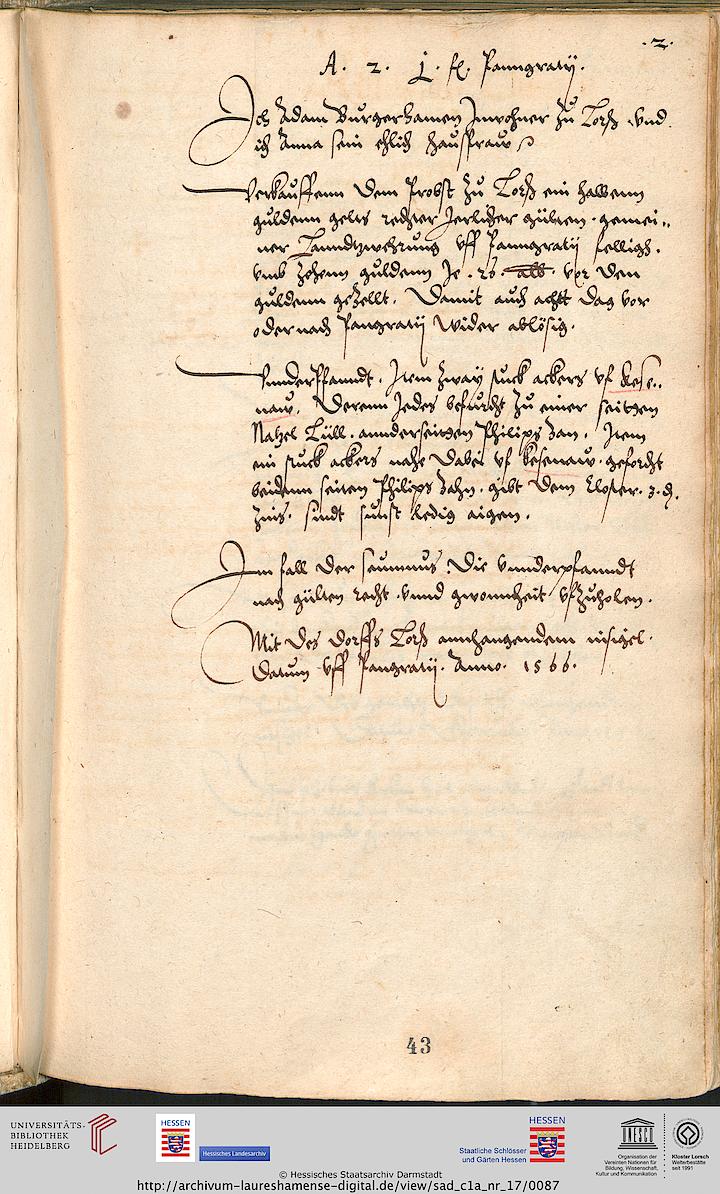 .2.
A. 2. j. fl. Panngratij.
Ich Adam Burgerhamen Inwohner zu Lorß vnd
ich Anna sein ehlich haussfraw
Verkauffenn dem Probst zu Lorß ein halbenn
guldenn gelts rechter Jerlicher gülten. gemei„
ner Lanndtzwehrung vff Panngratij fellich.
vmb zehenn guldenn Je. 26. alb. vor den
guldenn gezellt. Damit auch acht dag vor
oder nach Pangratij wider ablösig.
Vnnderpfanndt. Item zway stuck ackers vf kese„
naw. Derenn Jedes beforcht zu einer seitten
Lüll. annderseitten Philips Zan. Item
ein stuck ackers nahe dabei vf kesenaw. geforcht
beidenn seiten Philips Zahn. gibt dem Closter. 3. d.
zins. sindt sunst ledig aigen.
Im fall der seumnus. Die vnnderpfanndt
nach gülten recht. vnnd gewonnheit vfzuholen.
Mit des dorffs Lorß annhangendem insigel.
Datum vff Pangratij. Anno. 1566.
43
UNIVERSITÄTS-
BIBLIOTHEK
HEIDELBERG
HESSEN
Hessisches Landesarchiv
Staatliche Schlösser
und Gärten Hessen
HESSEN
UNESCO
Organisation der
Vereinten Nationen für
Bildung, Wissenschaft,
Kultur und Kommunikation
Kloster Lorsch
Welterbestätte
seit 1991
© Hessisches Staatsarchiv Darmstadt
http://archivum-laureshamense-digital.de/view/sad_c1a_nr_17/0087